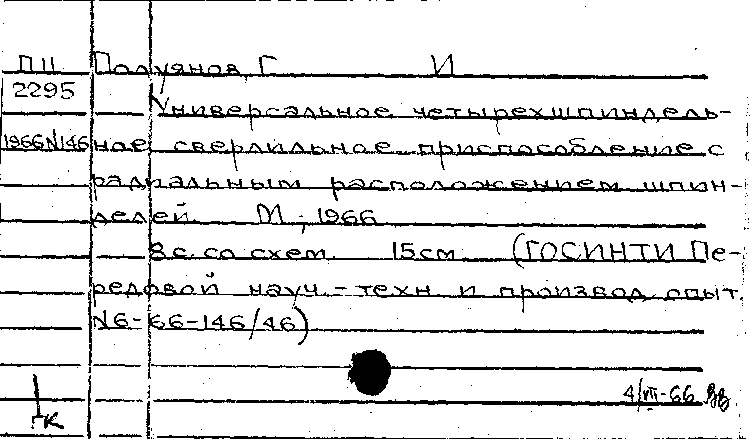 ПН Полуянов, Г. И
2295
Универсальное четырехшпиндель-
1966N146 ное сверлильное приспособление с
радиальным расположением шпин-
делей. М., 1966
8 с. со схем. 15 см. (ГОСИНТИ Пе-
редовой науч.-техн и производ опыт.
N6-66-146/46)
4/VII-66